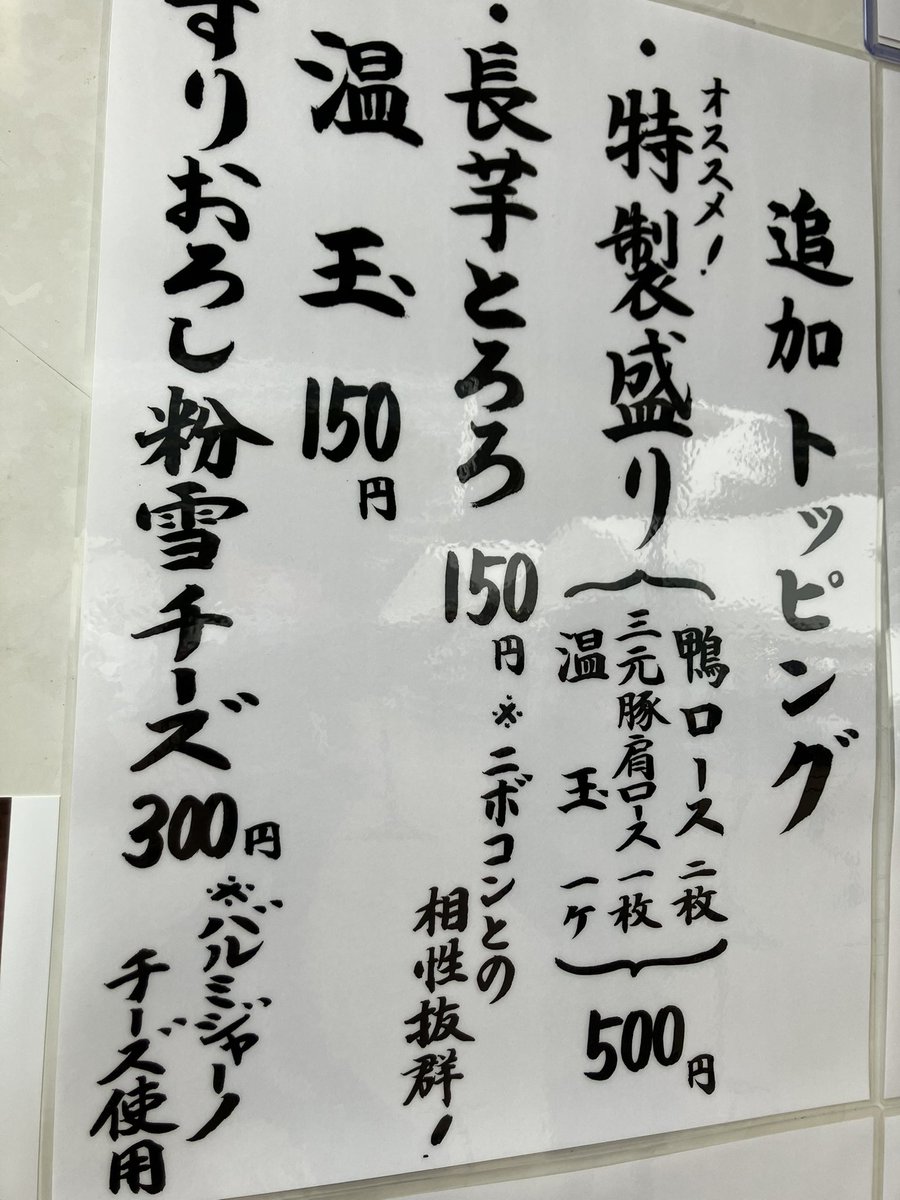 追加トッピング
オススメ!
・特製盛り
鴨ロース 二枚
三元豚肩ロース 一枚
温玉 一ケ
500円
・長芋とろろ 150円 ※ニボコンとの
相性抜群!
温玉 150円
すりおろし粉雪チーズ 300円 ※バルミジャーノ
チーズ使用